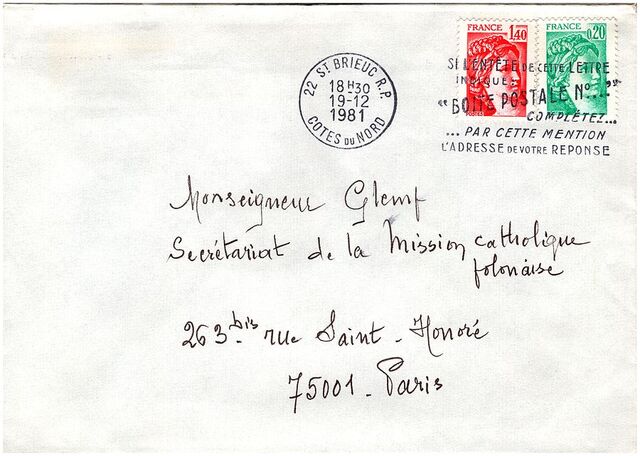 FRANCE 1,40
FRANCE 0,20
22 ST BRIEUC R.P.
18H30
19-12
1981
COTES DU NORD
SI L'ENTÊTE DE CETTE LETTRE
INDIQUE:
"BOITE POSTALE N°..."
COMPLÉTEZ...
... PAR CETTE MENTION
L'ADRESSE DE VOTRE REPONSE
Monseigneur Glemf
Secrétariat de la Mission catholique
polonaise
263 bis rue Saint-Honoré
75001 - Paris